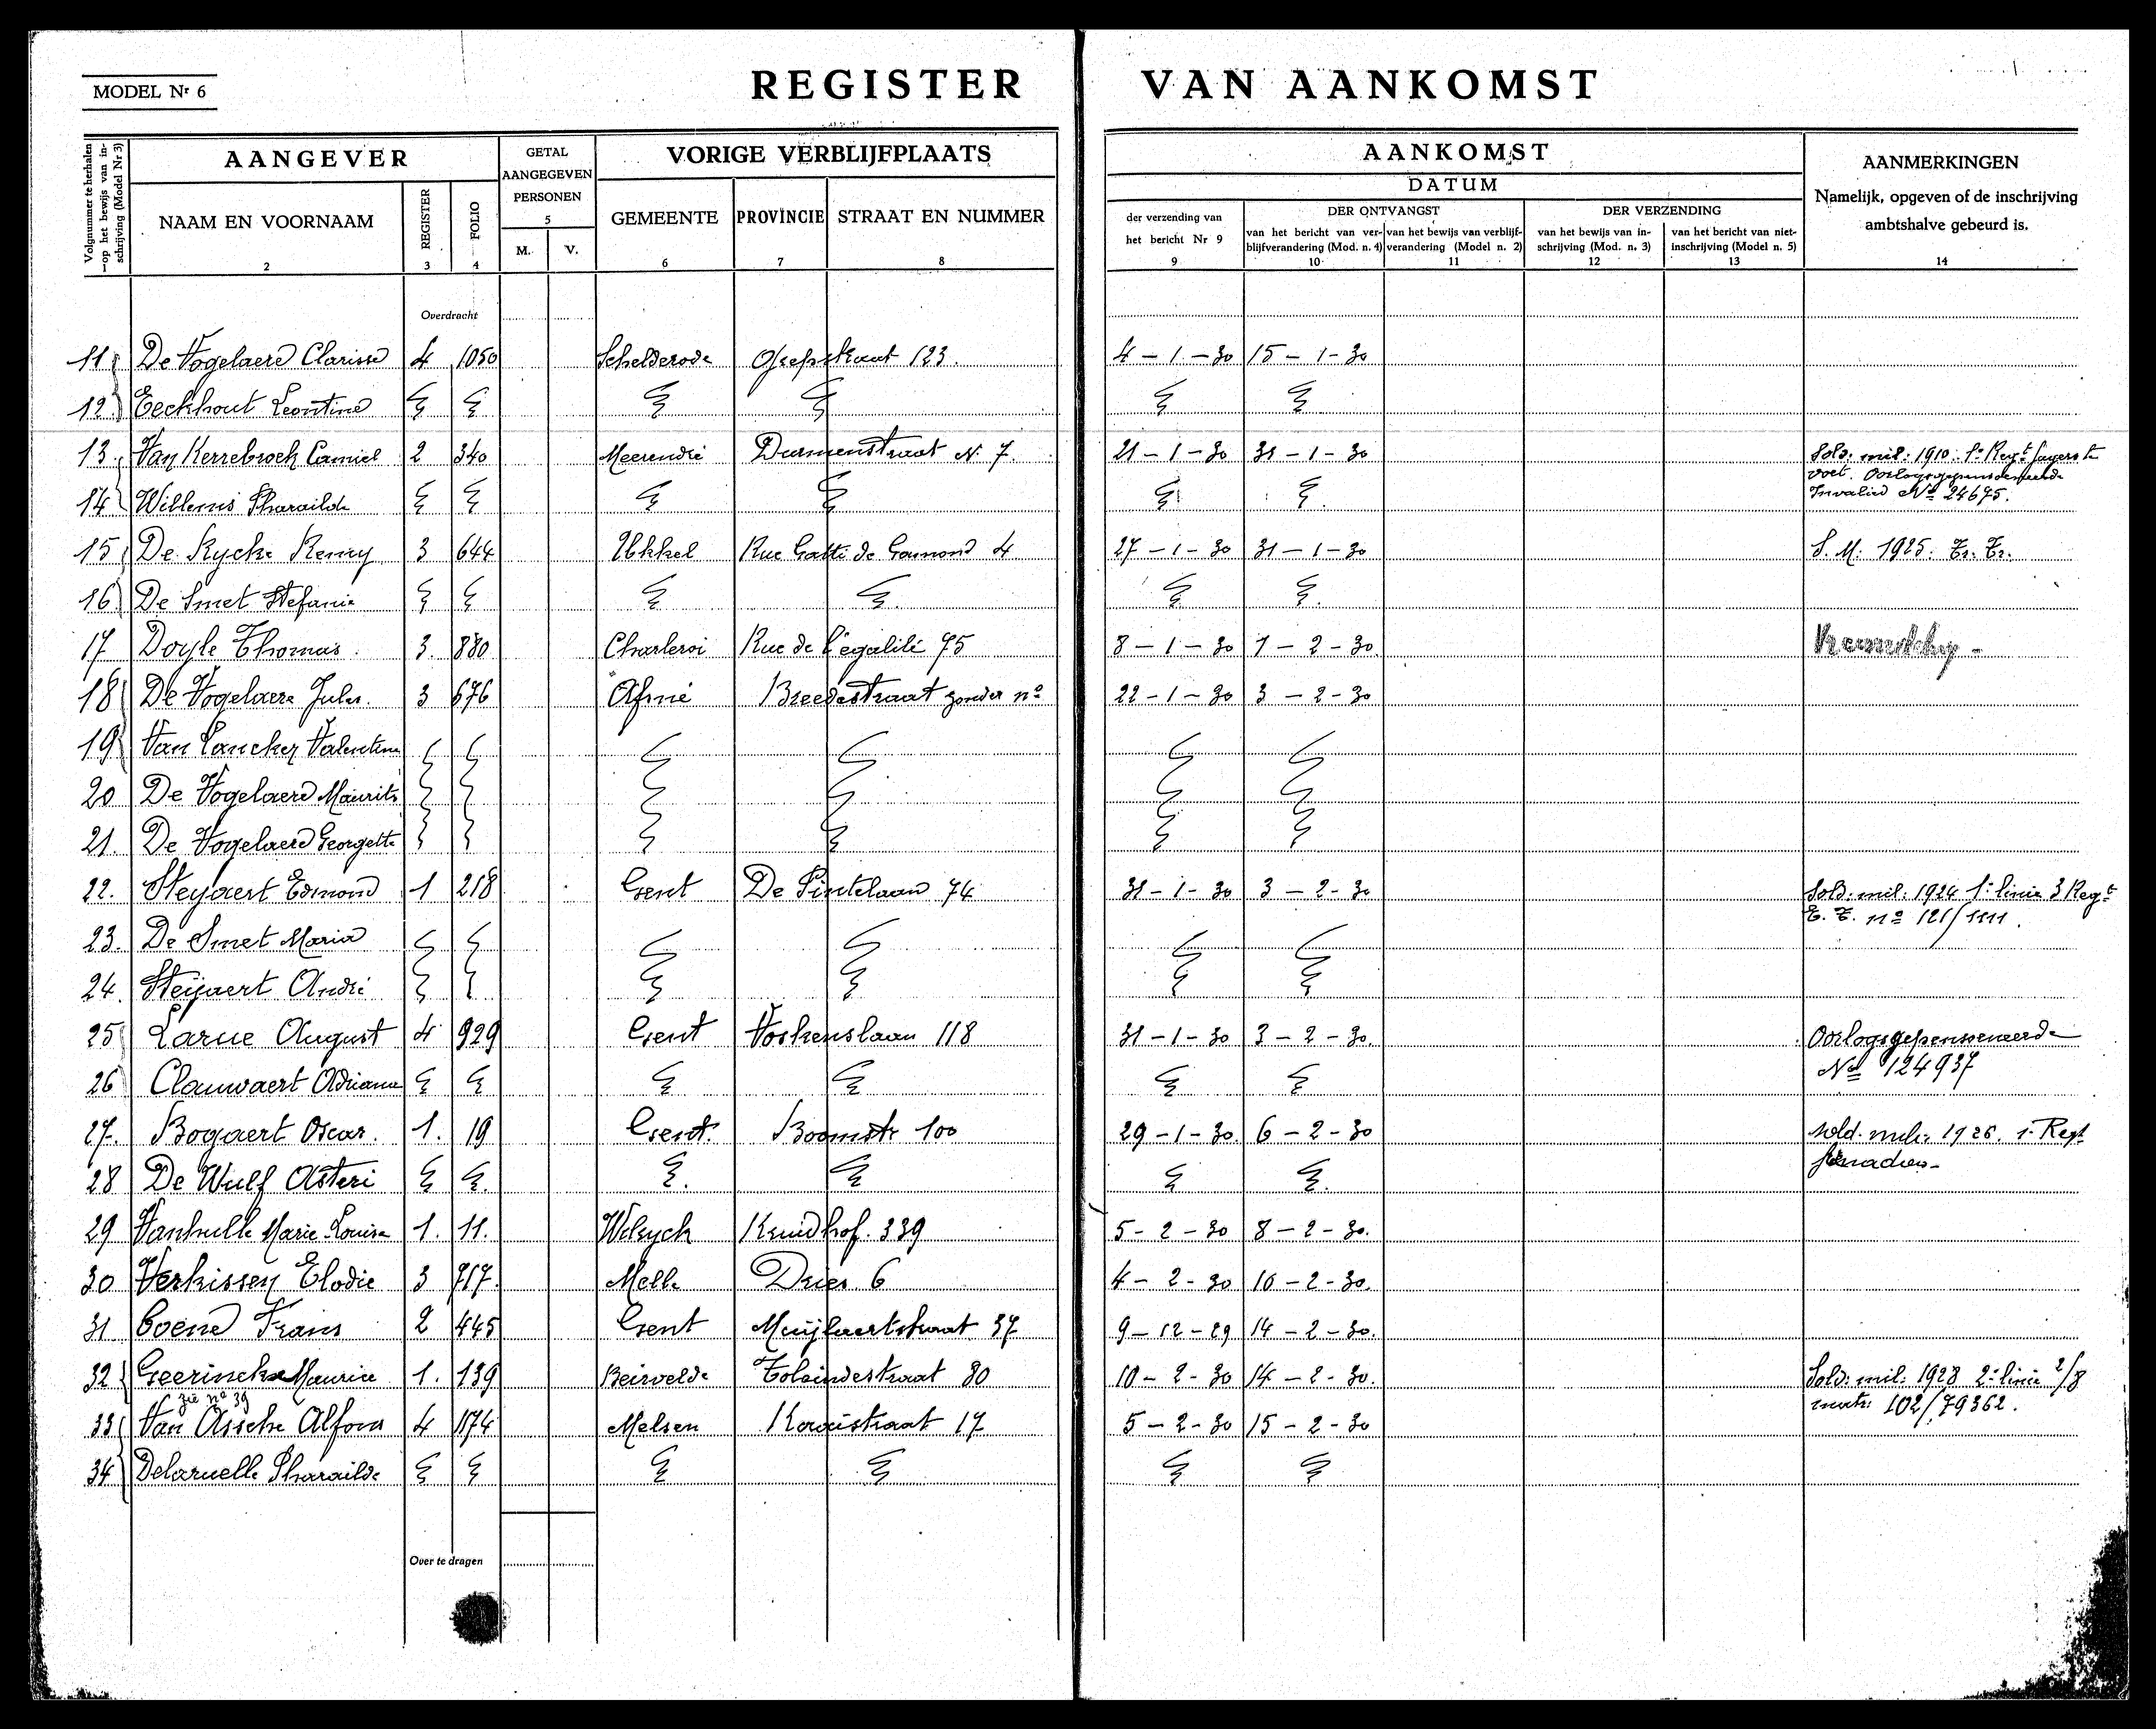 MODEL Nr 6
REGISTER VAN AANKOMST
Volgnummer te herhalen op het bewijs van inschrijving (Model Nr 3)
AANGEVER
GETAL AANGEGEVEN PERSONEN
5
VORIGE VERBLIJFPLAATS
AANKOMST
DATUM
AANMERKINGEN
Namelijk, opgeven of de inschrijving ambtshalve gebeurd is.
NAAM EN VOORNAAM
REGISTER
FOLIO
M.
V.
GEMEENTE
PROVINCIE
STRAAT EN NUMMER
der verzending van het bericht Nr 9
DER ONTVANGST
van het bericht van verblijfverandering (Mod. n. 4)
van het bewijs van verblijfverandering (Model n. 2)
DER VERZENDING
van het bewijs van inschrijving (Mod. n. 3)
van het bericht van niet-inschrijving (Model n. 5)
2 3 4 6 7 8 9 10 11 12 13 14
Overdracht
11 De Vogelaere Clarisse 4 1050 Schelderode 123. 4-1-30 15-1-30
12 Eeckhout Leontine
13. Van Kerrebroek Camiel 2 340 Meerendré Durmenstraat N. 7. 21-1-30 31-1-30 Sold. mil. 1910. 1e Regt Jagers te voet. Oorlogsgepensioneerde
14 Willems Pharailde Invalied No 24675.
15 De Rycke Remy 3 644 Ukkel Rue Gatti de Gamond 4 27-1-30 31-1-30 S. M. 1925. Tr. Tr.
16 De Smet Stefanie
17 Doyle Thomas 3. 880 Charleroi Rue de l'égalité 75 8-1-30 1-2-30
18 De Vogelaere Jules. 3 676 Afsné Breedestraat zonder no 22-1-30 3-2-30
19 Van Lancker Valentine
20 De Vogelaere Maurits
21. De Vogelaere Georgette
22. Steyaert Edmond 1 218 Gent De Pintelaan 74 31-1-30 3-2-30 Sold. mil. 1924 1e linie 3 Regt
T. T. no 121/1111.
23. De Smet Maria
24. Steyaert André
25 Larue August 4 929 Gent Voskenslaan 118 31-1-30 3-2-30. Oorlogsgepensioneerde
26 Clauwaert Adriana No 124937
27. Bogaert Oscar. 1. 19 Gent. Boomstr 100 29-1-30. 6-2-30 sold. mil. 1926. 1e Regt
28 De Wulf Asteri
29 Vanhulle Marie-Louise 1. 11. Wilryck Kruidhof. 339 5-2-30 8-2-30.
30 Verkissen Elodie 3 717. Melle Dries 6 4-2-30 10-2-30.
31 Coene Frans 2 445 Gent Muijlaertstraat 37 9-12-29 14-2-30.
32 Geerinckx Maurice 1. 139 Beirvelde Toleindestraat 80 10-2-30 14-2-30. Sold. mil. 1928 2e linie 2/8
zie no 39 matr. 102/79362.
33 Van Assche Alfons 4 1174 Melsen 17 5-2-30 15-2-30
34 Delaruelle Pharailde
Over te dragen